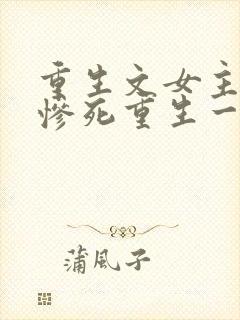 重生文女主
惨死重生一
蒲風子